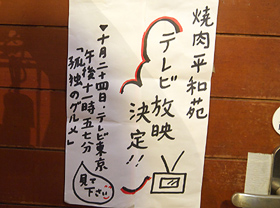 焼肉平和苑
テレビ放映
決定!!
♥十月二十四日:テレビ東京
午後十一時五七分
「孤独のグルメ」
見て
下さい